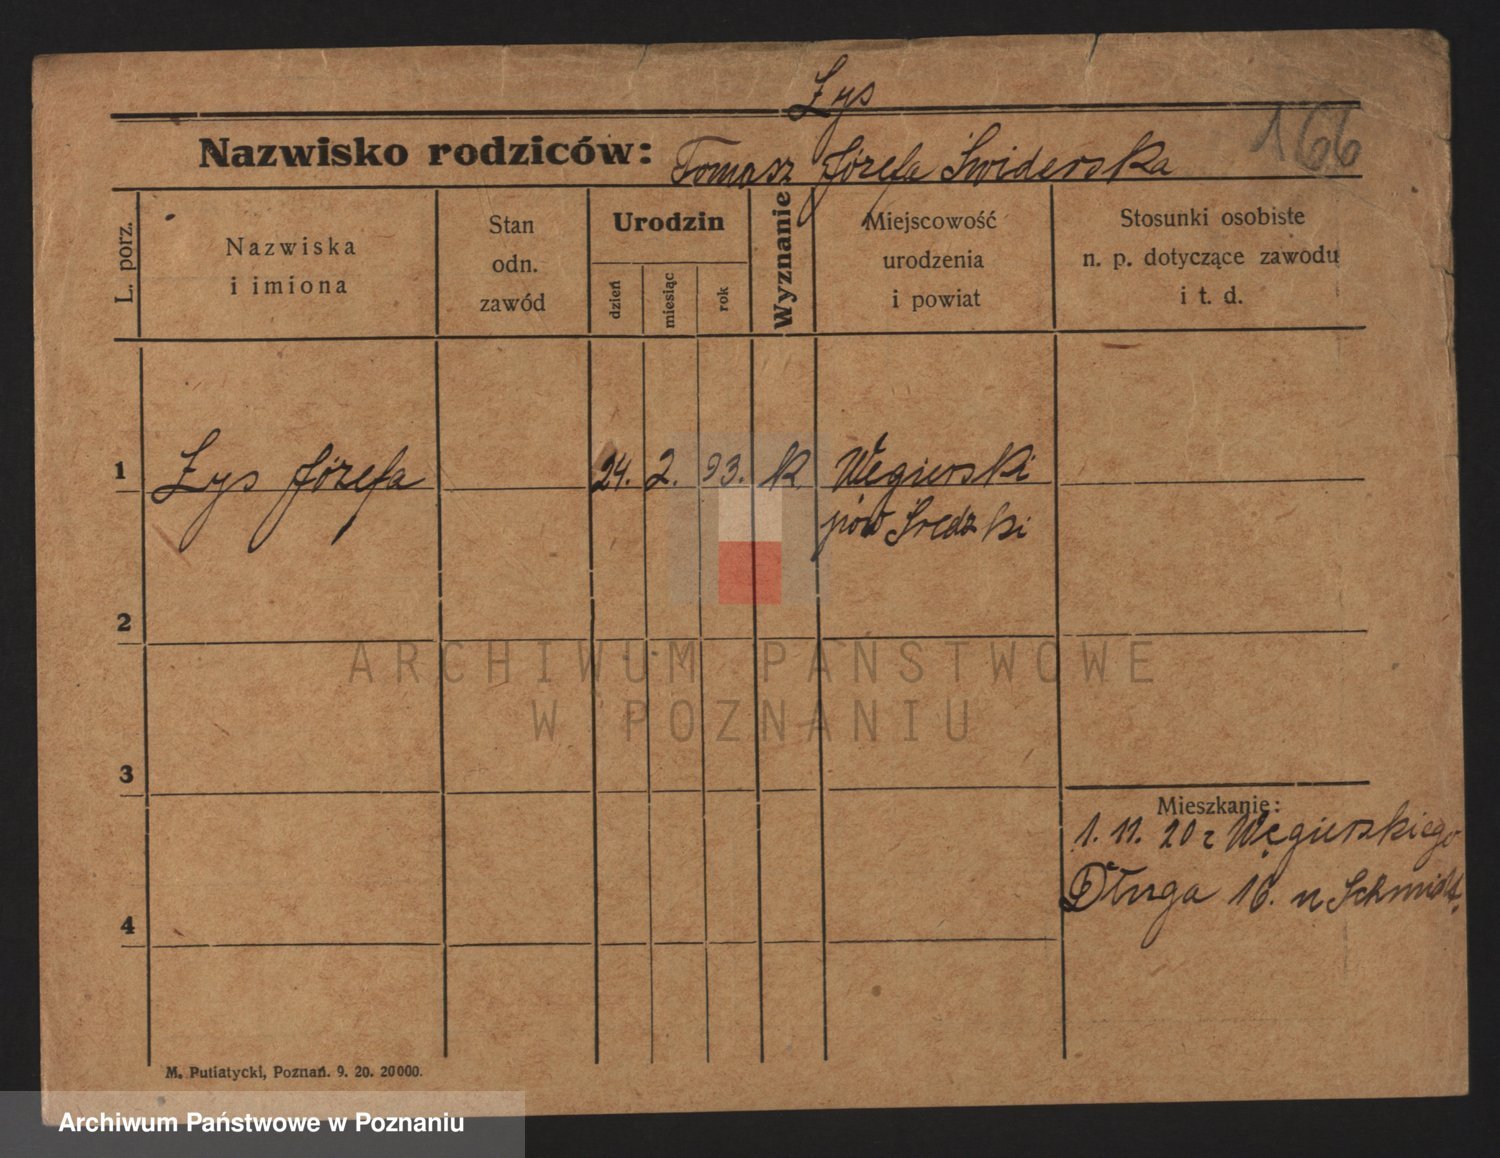 Zys
166
Nazwisko rodziców: Tomasz Józefa Świderska
L. porz.
Nazwiska i imiona
Stan odn. zawód
Urodzin
dzień miesiąc rok
Wyznanie
Miejscowość urodzenia i powiat
Stosunki osobiste n. p. dotyczące zawodu i t. d.
1 Zys Józefa 24. 2. 93. k. Węgierski
pow Średzki
2
ARCHIWUM PAŃSTWOWE
W POZNANIU
3
Mieszkanie:
1. 11. 20 z Węgierskiego
Długa 16. u Schmidt.
4
M. Putiatycki, Poznań. 9. 20. 20000.
Archiwum Państwowe w Poznaniu